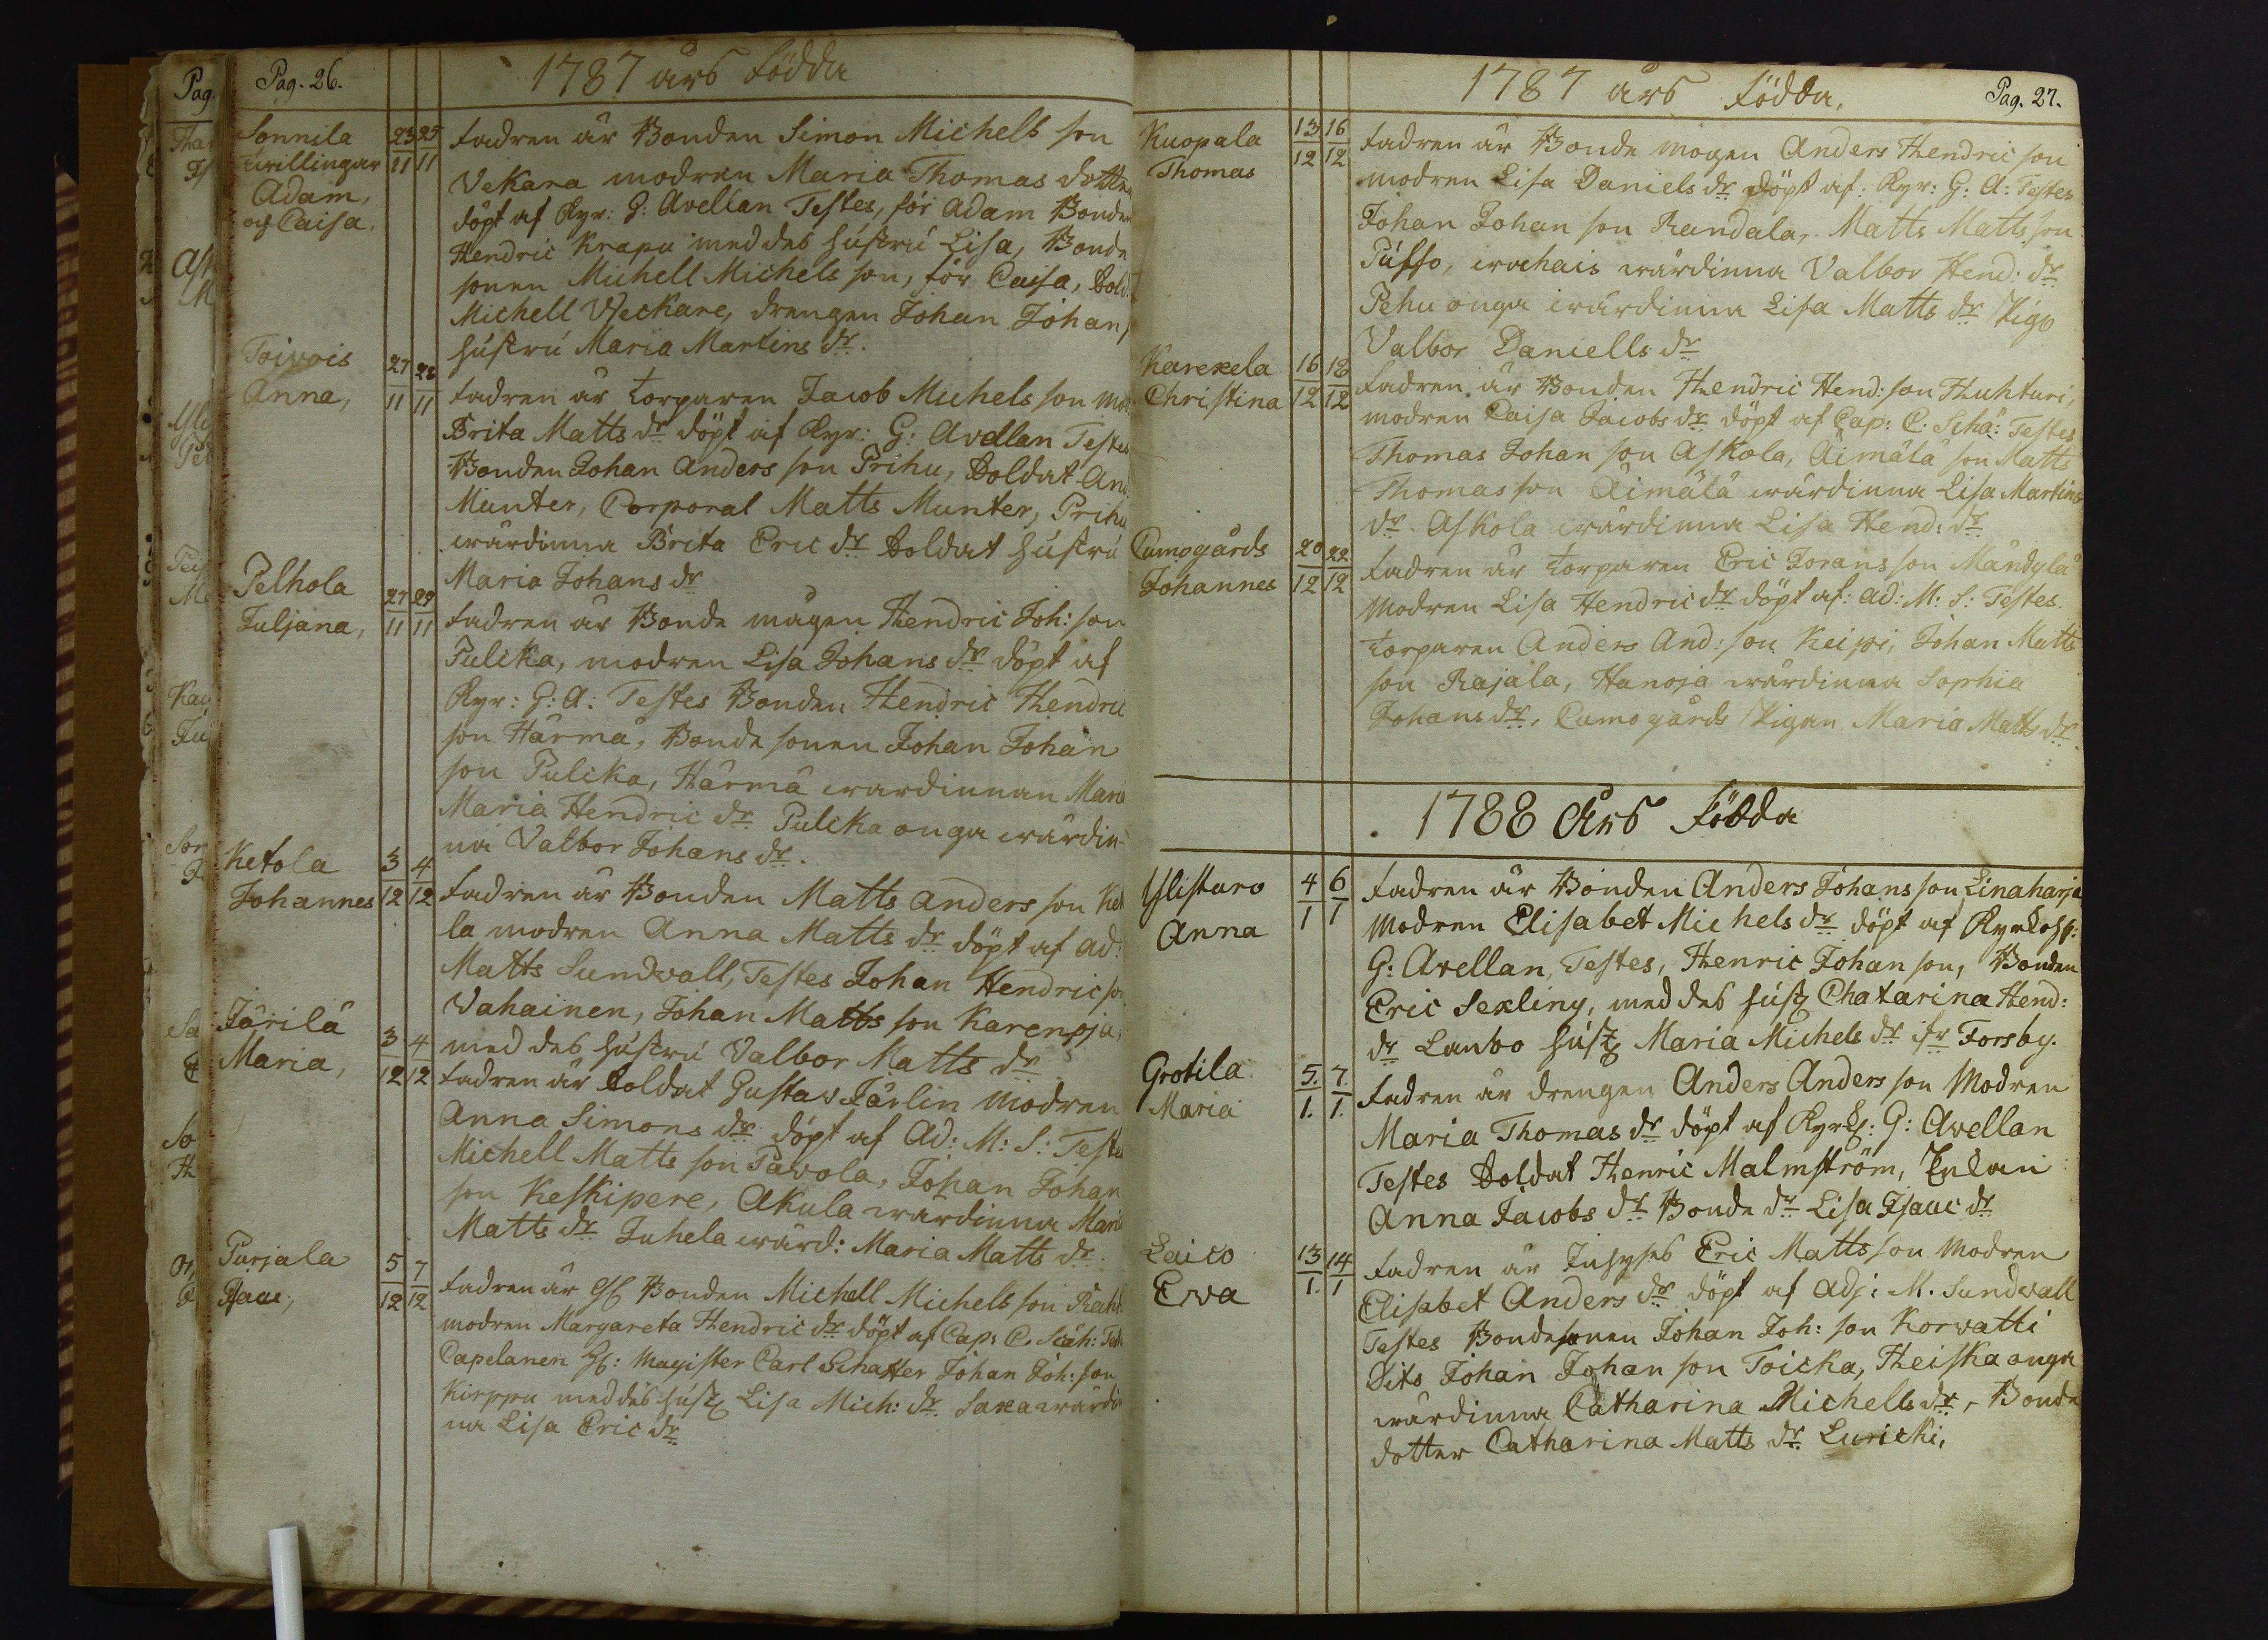 Pag. 26.
1787 års Födda
Sonnila
twillingar
Adam,
och Caisa.
23 25
11 11
Fadren är Bonden Simon Michels son
Vekara modren Maria Thomas dotter
döpt af Kyr: G: Avellan Testes, för Adam Bonden
Hendric Krapu med des hustru Lisa, Bonde
sonen Michell Michels son, för Caisa, Sold.
Michell Veckare, drengen Johan Johan
hustru Maria Martins dr.
Toivois
Anna,
27 28
11 11
Fadren är torparen Jacob Michels son mod
Brita Matts dr döpt af Kyr: G: Avellan Testes
Bonden Johan Anders son Prihu, Soldat And
Munter, Corporal Matts Munter, Prihu
wärdinna Brita Eric dr Soldat hustru
Maria Johans dr
Pelhola
Juljana,
27 29
11 11
Fadren är Bonde mågen Hendric Joh: son
Pulcka, modren Lisa Johans dr döpt af
Kyr: G: A: Testes Bonden Hendric Hendric
son Härmä, Bonde sonen Johan Johan
son Pulcka, Härmä wärdinnan Mari
Maria Hendric dr Pulcka onga wärdin-
na Valbor Johans dr.
Ketola
Johannes
3 4
12 12
Fadren är Bonden Matts Anders son Ket
la modren Anna Matts dr döpt af ad:
Matts Sundvall, Testes Johan Hendric son
Vahainen, Johan Matts son Karenoja,
med des hustru Valbor Matts dr
Järilä
Maria,
3 4
12 12
Fadren är Soldat Gustav Järlin modren
Anna Simons dr döpt af Ad: M: S: Testes
Michell Matts son Pavola, Johan Johan
son Keskipere, Akula wärdinna Maria
Matts dr Juhela wärd: Maria Matts dr.
Purjala
Isaac,
5 7
12 12
Fadren är Bonden Michell Michels son
modren Margareta Hendric dr döpt af Cap: C. Scäh: Test
Capelanen H: Magister Carl Schäffer Johan Joh: son
Kirppu med des hust Lisa Mich: dr Saxa wärdi
na Lisa Eric dr
1787 års Födda.
Pag. 27.
Kuopala
Thomas
13 16
12 12
Fadren är Bonde mogen Anders Hendric son
modren Lisa Daniels dr döpt af: Kyr: G: A: Testes
Johan Johan son Randala, Matts Matts son
wärdinna Valbor Hend: dr
Pehu onga wärdinna Lisa Matts dr Pigo
Valbor Daniells dr
Karexela
Christina
16 18
12 12
Fadren är Bonden Hendric Hend: son Huhturi,
modren Caisa Jacobs dr döpt af Cap: C: Schä: Testes
Thomas Johan son Askola, Äimälä son Matts
Thomas son Äimälä wärdinna Lisa Martins
dr. Askola wärdinna Lisa Hend: dr
Cumogårds
Johannes
20 22
12 12
Fadren är torparen Eric Jorans son Mändylä
Modren Lisa Hendric dr döpt af: ad: M: S: Testes.
torparen Anders And: son Keipi, Johan Matts
son Rajala, Hanoja wärdinna Sophia
Johans dr, Cumogårds Pigan Maria Matts dr.
1788 Års Födda
Ylistaro
Anna
4 6
1 1
Fadren är Bonden Anders Johans son Linaharja
Modren Elisabet Michels dr döpt af Kyrkoh:
G: Avellan, Testes, Henric Johan son, Bonden
Eric Sexling, med des hust Chatarina Hend:
dr Lanbo hust Maria Michels dr ifr Forsby.
Grotila
Maria
5. 7.
1. 1.
Fadren är drengen Anders Anders son Modren
Maria Thomas dr döpt af Kyrk: G: Avellan
Testes Soldat Henric Malmström, Enkan
Anna Jacobs dr Bonde dr Lisa Isaac dr
Laico
Ewa
13 14
1. 1
Fadren är Inhyses Eric Matts son Modren
Elisabet Anders dr döpt af Adj: M. Sundvall
Testes Bondesonen Johan Joh: son Korvatti
Dito Johan Johan son Toicka, Heiska onga
wärdinna Catharina Michells dr, Bonde
dotter Catharina Matts dr Luricki,